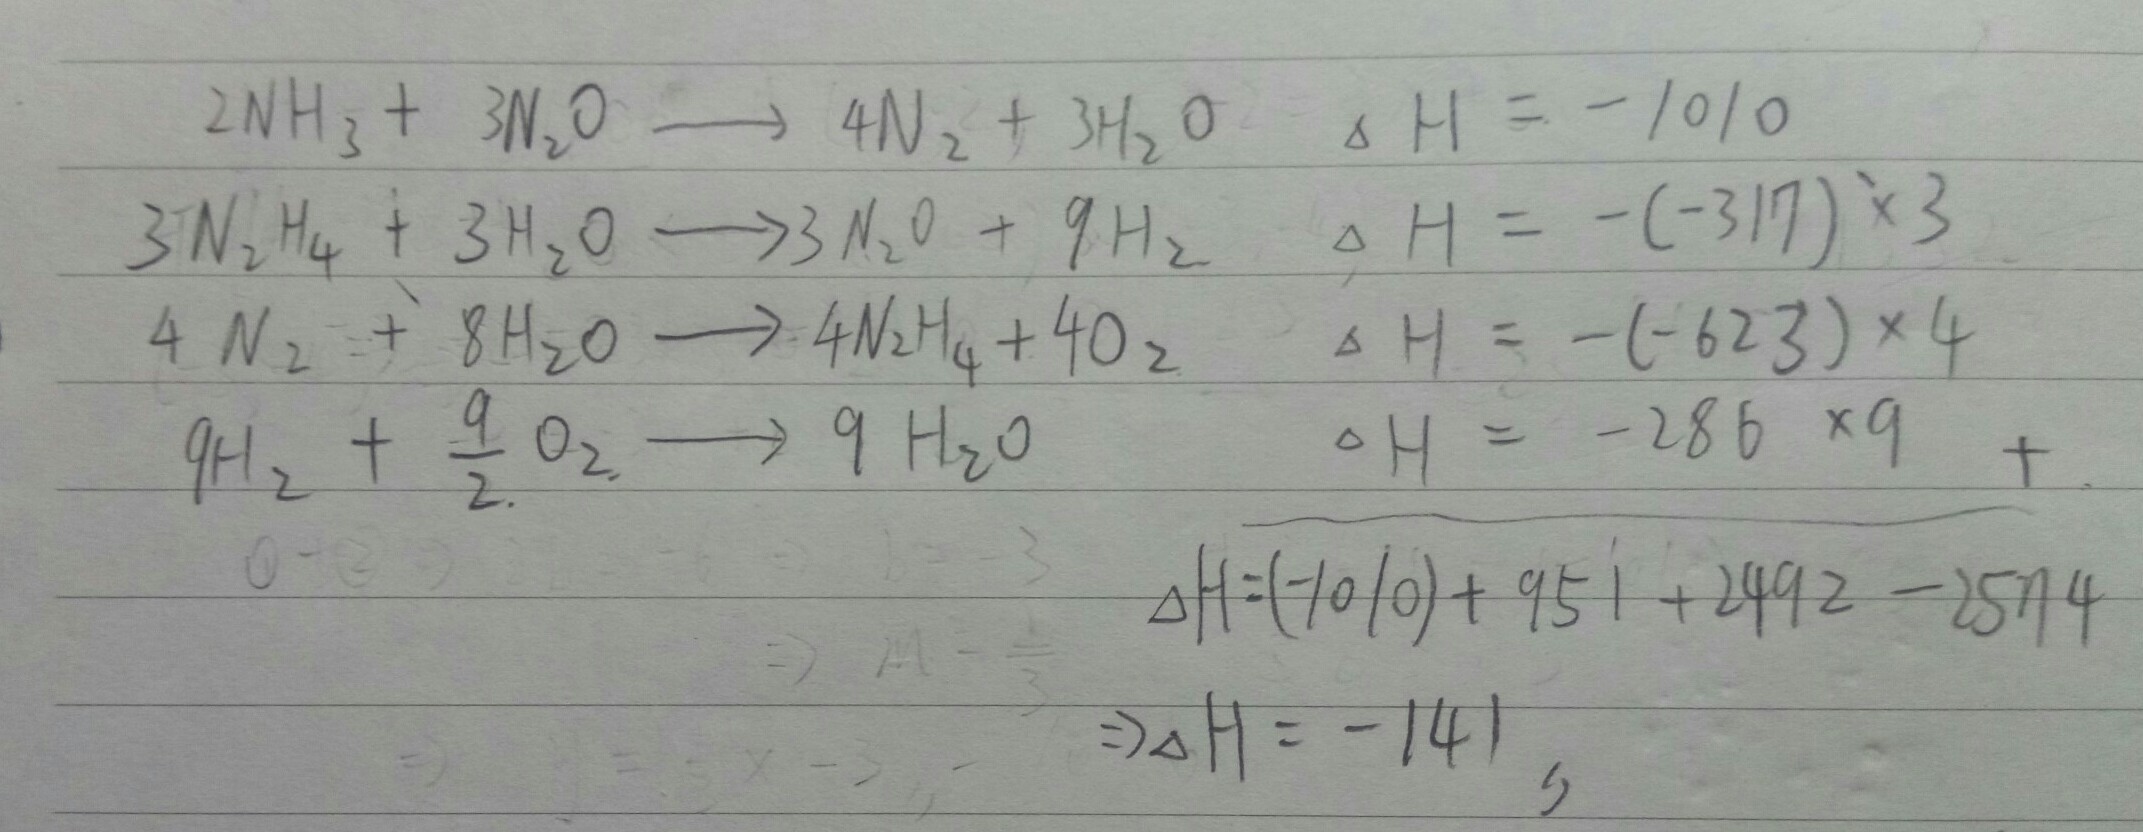 2NH₃ + 3N₂O ⟶ 4N₂ + 3H₂O △H = -1010
3N₂H₄ + 3H₂O ⟶ 3N₂O + 9H₂ △H = -(-317) × 3
4N₂ + 8H₂O ⟶ 4N₂H₄ + 4O₂ △H = -(-623) × 4
9H₂ + 9/2 O₂ ⟶ 9H₂O △H = -286 × 9 +
△H = (-1010) + 951 + 2492 - 2574
⇒ △H = -141